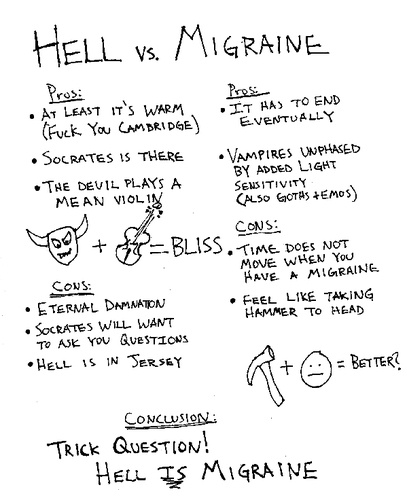 HELL vs. MIGRAINE
Pros:
• AT LEAST IT'S WARM
(FUCK YOU CAMBRIDGE)
• SOCRATES IS THERE
• THE DEVIL PLAYS A
MEAN VIOLIN
+ = BLISS
CONS:
• ETERNAL DAMNATION
• SOCRATES WILL WANT
TO ASK YOU QUESTIONS
• HELL IS IN JERSEY
Pros:
• IT HAS TO END
EVENTUALLY
• VAMPIRES UNPHASED
BY ADDED LIGHT
SENSITIVITY
(ALSO GOTHS + EMOS)
CONS:
• TIME DOES NOT
MOVE WHEN YOU
HAVE A MIGRAINE
• FEEL LIKE TAKING
HAMMER TO HEAD
+ = BETTER?
CONCLUSION:
TRICK QUESTION!
HELL IS MIGRAINE